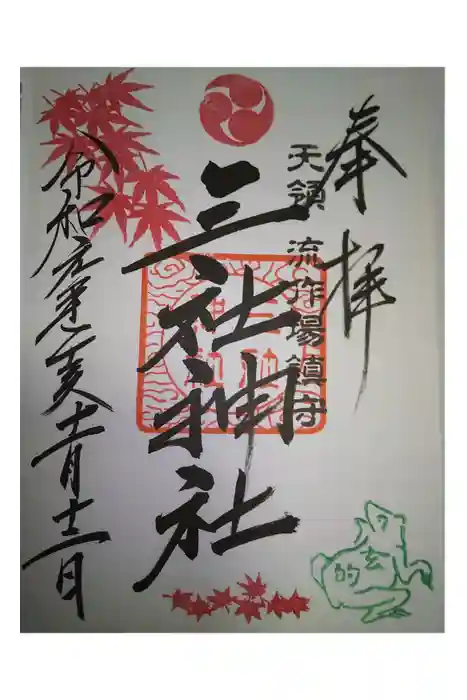 奉拝
天領 流作場鎮守
三社神社
令和元年己亥十一月十二日